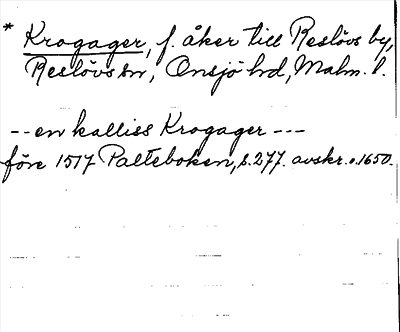 * Krogager, f. åker till Reslövs by,
Reslövs sn, Onsjö hd, Malm. l.
-- en kalliss Krogager ---
före 1517 Palteboken, s. 277. avskr. o. 1650.